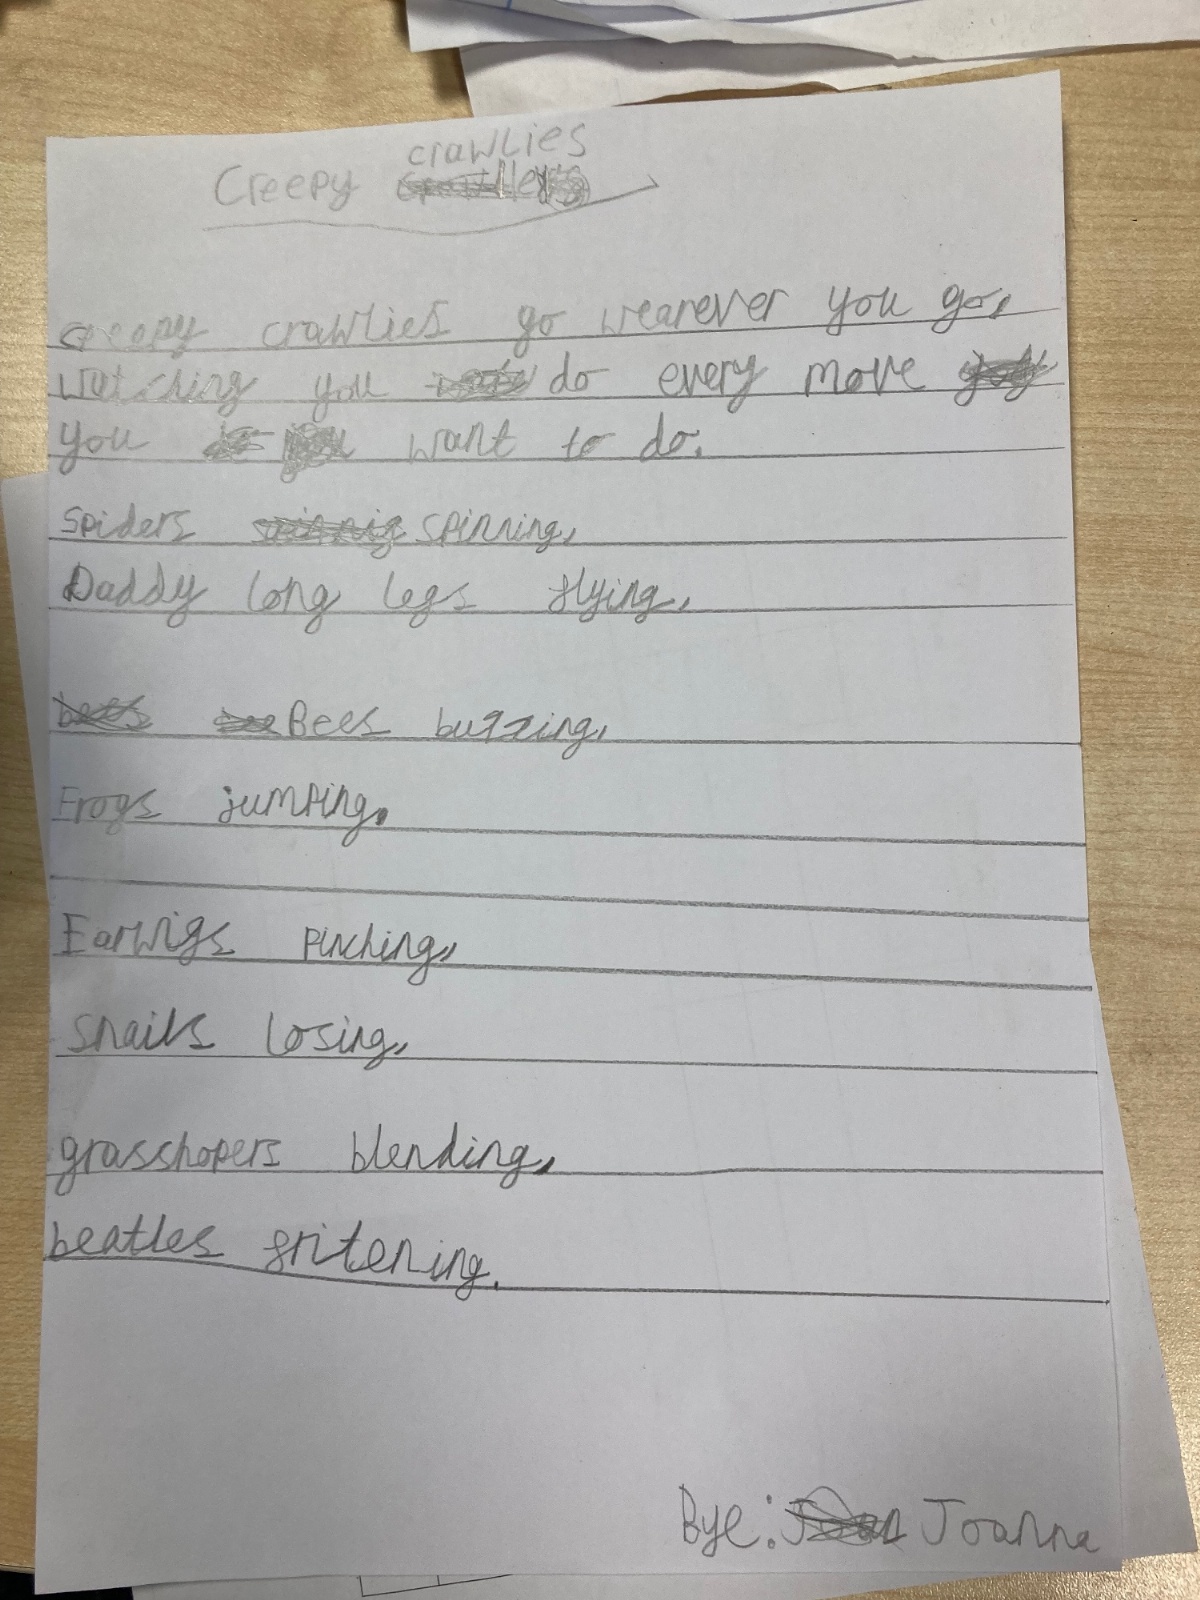 crawlies
Creepy
creepy crawlies go wearever you go,
watching you do every move
you want to do.
Spiders spinning,
Daddy long legs flying,
Bees buzzing,
Frogs jumping.
Earwigs pinching,
Snails losing,
grasshopers blending,
beatles fritening.
Bye: Joanna